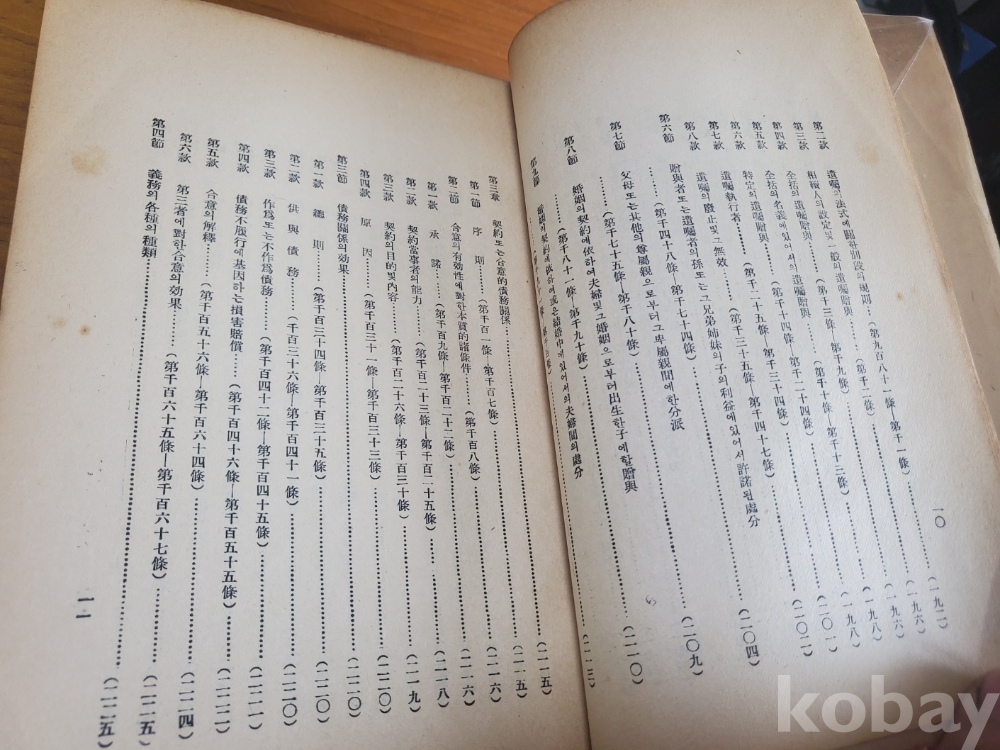 一〇
第二款 遺囑의 法式에 關한 別段의 規則……(第九百八十一條—第千一條)……(一九二)
第三款 相續人의 設定 및 一般의 遺囑贈與……(第千二條)……(一九六)
第四款 全括의 遺囑贈與……(第千三條—第千九條)……(一九六)
第五款 全括의 名義에 있어서의 遺囑贈與……(第千十條—第千十三條)……(一九八)
第六款 特定의 遺囑贈與……(第千十四條—第千二十四條)……(一九八)
第七款 遺囑執行者……(第千二十五條—第千三十四條)……(二〇一)
第八款 遺囑의 廢止 및 그 無效……(第千三十五條—第千四十七條)……(二〇二)
第六節 贈與者 또는 遺囑者의 孫 또는 그 兄弟姉妹의 子의 利益에 있어서 許諾된 處分
……(第千四十八條—第千七十四條)……(二〇四)
第七節 父母 또는 其他의 尊屬親으로부터 그 卑屬親間에 한 分派
……(第千七十五條—第千八十條)……(二〇九)
第八節 婚姻의 契約에 依하여 夫婦 및 그 婚姻으로부터 出生한 子에 할 贈與
……(第千八十一條—第千九十條)……(二一〇)
第九節 婚姻의 契約에 依하여 或은 結婚中에 있어서의 夫婦間의 處分
第三章 契約 또는 合意的 債務關係
第一節 序則……(第千百一條—第千百七條)……(二一五)
第二節 合意의 有效性에 對한 本質的 諸條件……(第千百八條)……(二一五)
第一款 承諾……(第千百九條—第千百二十二條)……(二一六)
第二款 契約當事者의 能力……(第千百二十三條—第千百二十五條)……(二一八)
第三款 契約의 目的 및 內容……(第千百二十六條—第千百三十條)……(二一九)
第四款 原因……(第千百三十一條—第千百三十三條)……(二二〇)
第三節 債務關係의 效果
第一款 總則……(第千百三十四條—第千百三十五條)……(二二〇)
第二款 供與債務……(千百三十六條—第千百四十一條)……(二二〇)
第三款 作爲 또는 不作爲債務……(第千百四十二條—第千百四十五條)……(二二一)
第四款 債務不履行에 基因하는 損害賠償……(第千百四十六條—第千百五十五條)……(二二二)
第五款 合意의 解釋……(第千百五十六條—第千百六十四條)……(二二四)
第六款 第三者에 對한 合意의 效果……(第千百六十五條—第千百六十七條)……(二二五)
第四節 義務의 各種의 種類……(二二五)
一一
kobay